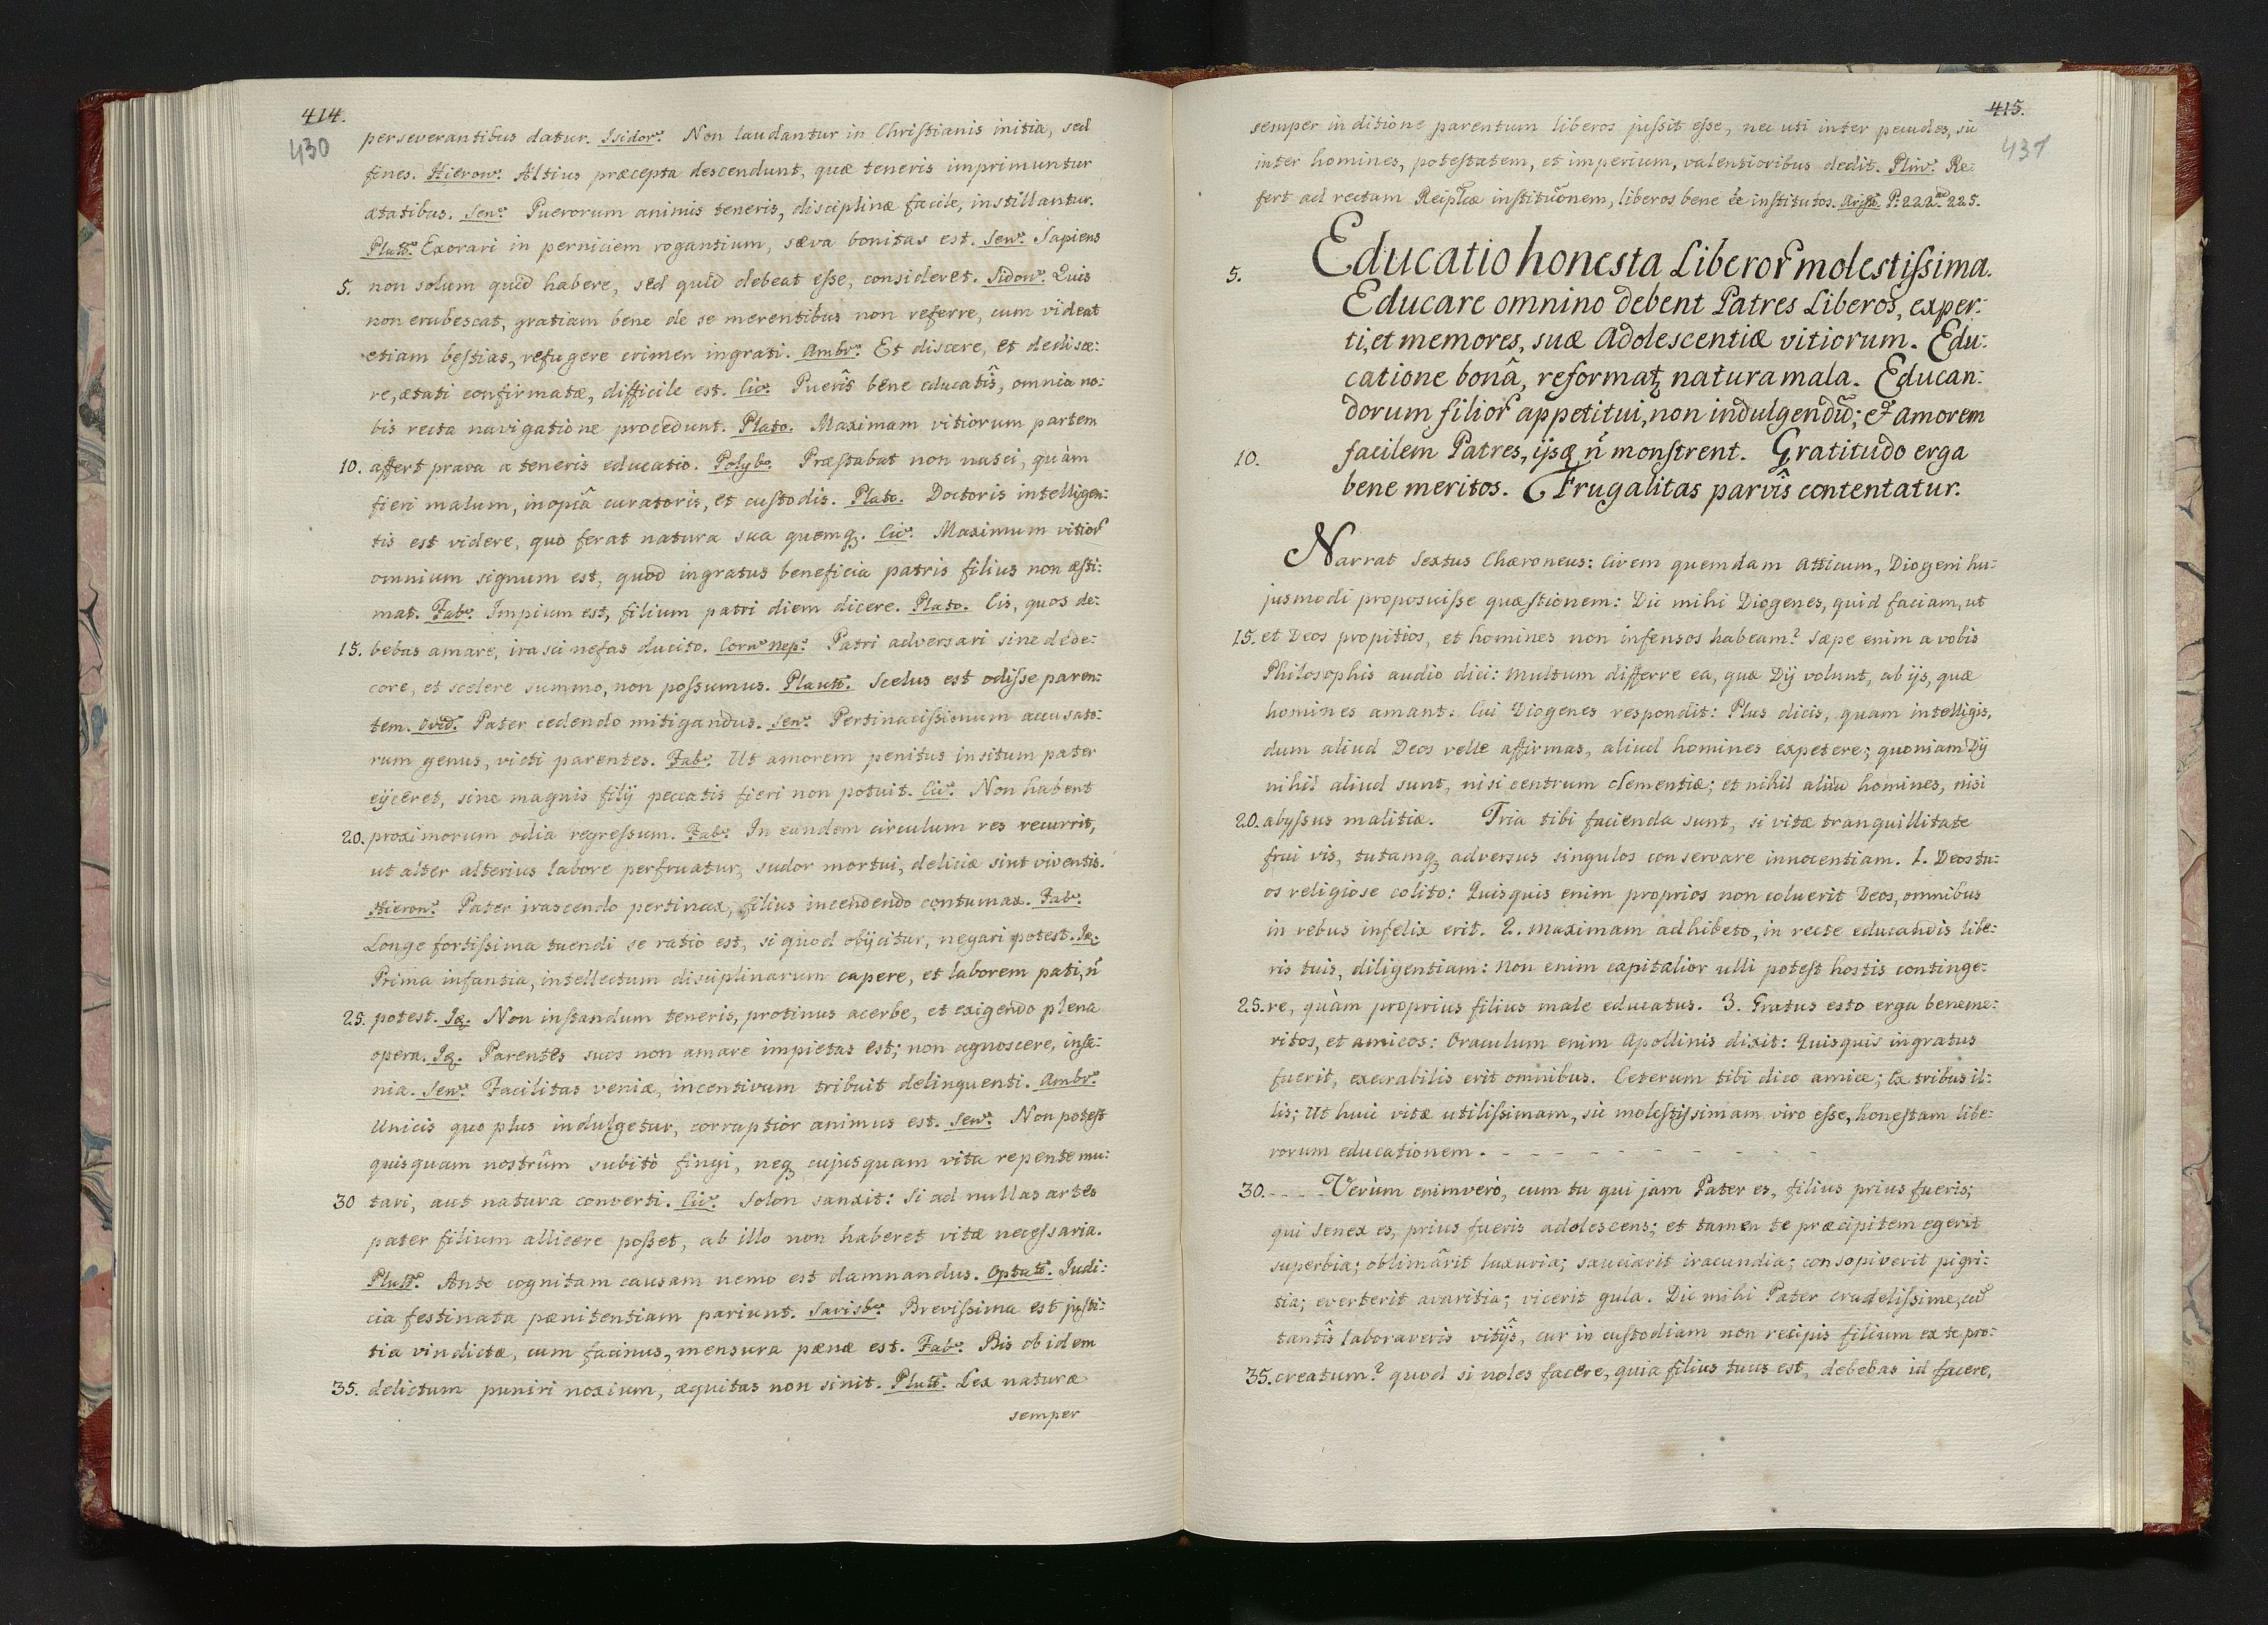 414.
430
perseverantibus datur. Isidor9. Non laudantur in Christianis initia, sed
fines. Hieron9. Altius præcepta descendunt, quæ teneris imprimuntur
ætatibus. Sen9. Puerorum animis teneris, disciplinæ facile, instillantur.
Plat9. Exorari in perniciem rogantium, sæva bonitas est. Sen9. Sapiens
5. non solum quid habere, sed quid debeat esse, consideret. Sidon9. Quis
non erubescat, gratiam bene de se merentibus non referre, cum videat
etiam bestias, refugere crimen ingrati. Ambr9. Et discere, et dedisce:
re, ætati confirmatæ, difficile est. Cic9. Puerîs bene educatîs, omnia no:
bis recta navigatione procedunt. Plato. Maximam vitiorum partem
10. affert prava a teneris educatio. Polyb9. Præstabat non nasci, quàm
fieri malum, inopiâ curatoris, et custodis. Plato. Doctoris intelligen:
tis est videre, quo ferat natura sua quemq. Cic9. Maximum vitior
omnium signum est, quod ingratus beneficia patris filius non æsti:
mat. Fab9. Impium est, filium patri diem dicere. Plato. Cis, quos de:
15. bebas amare, irasci nefas ducito. Corn9 Nep9. Patri adversari sine dede:
core, et scelere summo, non possumus. Plaut9. Scelus est odisse paren:
tem. Ovid9. Pater cedendo mitigandus. Sen9. Pertinacissimum accusato:
rum genus, victi parentes. Fab9. Ut amorem penitus insitum pater
eijceret, sine magnis filij peccatis fieri non potuit. Cic9. Non habent
20. proximorum odia regressum. Fab9. In eundem circulum res recurrit,
ut alter alterius labore perfruatur, sudor mortui, deliciæ sint viventis.
Hieron9. Pater irascendo pertinax, filius incendendo contumax. Fab9.
Longe fortissima tuendi se ratio est, si quod obijcitur, negari potest. Iq.
Prima infantia, intellectum disciplinarum capere, et laborem pati, n̄
25. potest. Iq. Non instandum teneris, protinus acerbe, et exigendo plena
opera. Iq. Parentes suos non amare impietas est; non agnoscere, insa:
nia. Sen9. Facilitas veniæ, incentivum tribuit delinquenti. Ambr9.
Unicis quo plus indulgetur, corruptior animus est. Sen9. Non potest
quisquam nostrûm subitò fingi, neq cujusquam vita repente mu:
30 tari, aut natura converti. Cic9. Solon sanxit: Si ad nullas artes
pater filium allicere posset, ab illo non haberet vitæ necessaria.
Plut9. Ante cognitam causam nemo est damnandus. Optat9. Judi:
cia festinata pœnitentiam pariunt. Sarisb9. Brevissima est justi:
tia vindictæ, cum facinus, mensura pœnæ est. Fab9. Bis ob idem
35. delictum puniri noxium, æquitas non sinit. Plut9. Lex naturæ
semper
415.
431
semper in ditione parentum liberos jussit esse, nec uti inter pecudes, sic
inter homines, potestatem, et imperium, valentioribus dedit. Plin9. Re:
fert ad rectam Reiplcæ institučonem, liberos bene ee institutos. Aristi. P: 222. ad 225.
5. Educatio honesta Liberor molestissima.
Educare omnino debent Patres Liberos, exper:
ti, et memores, suæ Adolescentiæ vitiorum. Edu:
catione bonâ, reformat natura mala. Educan:
dorum filior appetitui, non indulgendū; et amorem
10. facilem Patres, ijsq n̄ monstrent. Gratitudo erga
bene meritos. Frugalitas parvîs contentatur.
Narrat Sextus Chæroneus: Civem quemdam Atticum, Diogeni hu:
jusmodi proposuisse quæstionem: Dic mihi Diogenes, quid faciam, ut
15. et Deos propitios, et homines non infensos habeam? Sæpe enim a vobis
Philosophis audio dici: Multum differre ea, quæ Dij volunt, ab ijs, quæ
homines amant. Cui Diogenes respondit: Plus dicis, quam intelligis,
dum aliud Deos velle affirmas, aliud homines expetere; quoniam Dij
nihil aliud sunt, nisi centrum clementiæ; et nihil aliud homines, nisi
20. abyssus malitiæ. Tria tibi facienda sunt, si vitæ tranquillitate
frui vis, tutamq adversus singulos conservare innocentiam. 1. Deos tu:
os religiose colito: Quisquis enim proprios non coluerit Deos, omnibus
in rebus infelix erit. 2. Maximam adhibeto, in recte educandis libe:
ris tuis, diligentiam: Non enim capitalior ulli potest hostis continge:
25. re, quàm proprius filius male educatus. 3. Gratus esto erga beneme:
ritos, et amicos: Oraculum enim Apollinis dixit: Quisquis ingratus
fuerit, execrabilis erit omnibus. Ceterum tibi dico amice; Ex tribus il:
lis; Ut huic vitæ utilissimam, sic molestissimam viro esse, honestam libe:
rorum educationem. - - - - - - - - - -
30. - - - - Verùm enimverò, cum tu qui jam Pater es, filius prius fueris;
qui senex es, prius fueris adolescens; et tamen te præcipitem egerit
superbia; oblimârit luxuria; sauciarit iracundia; consopiverit pigri:
tia; everterit avaritia; vicerit gula. Dic mihi Pater crudelissime, cū
tantîs laboraveris vitijs, cur in custodiam non recipis filium ex te pro:
35. creatum? quod si noles facere, quia filius tuus est, debebas id facere,